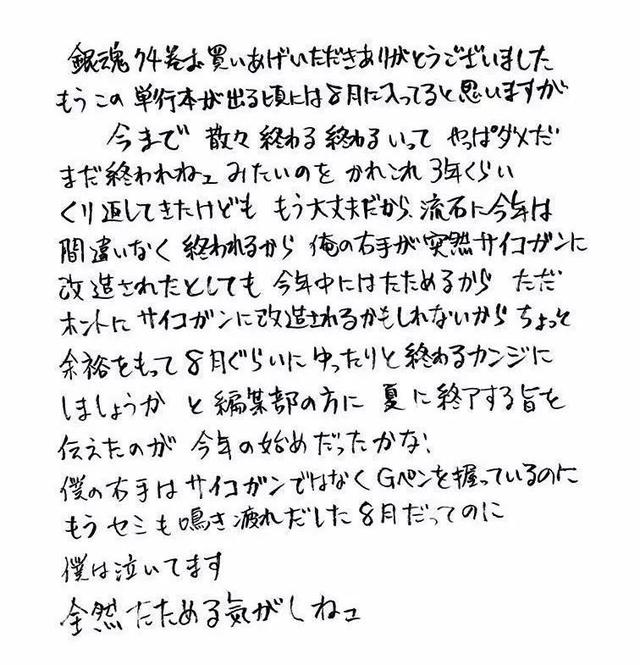 銀魂74巻お買いあげいただきありがとうございました
もうこの単行本が出る頃には8月に入ってると思いますが
今まで 散々終わる終わるいって やっぱダメだ
まだ終われねェ みたいのを かれこれ3年くらい
くり返してきたけども もう大丈夫だから、流石に今年は
間違いなく 終われるから 俺の右手が突然サイコガンに
改造されたとしても 今年中にはたためるから ただ
ホントにサイコガンに改造されるかもしれないから ちょっと
余裕をもって8月ぐらいにゆったりと終わるカンジに
しましょうか と編集部の方に 夏に終了する旨を
伝えたのが 今年の始めだったかな、
僕の右手はサイコガンではなくGペンを握っているのに
もう セミも鳴き疲れだした8月だってのに
僕は泣いてます
全然たためる気がしねェ